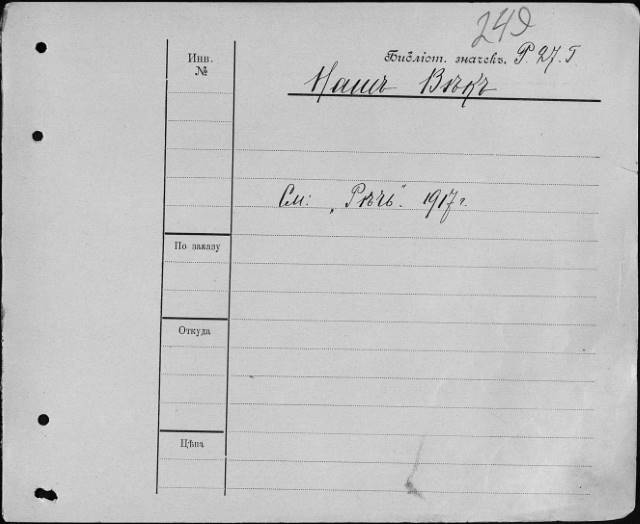 249
Библіот. значекъ. Р. 27. Г.
Инв. №
Нашъ Вѣкъ
См: „Рѣчь“. 1917 г.
По заказу
Откуда
Цѣна